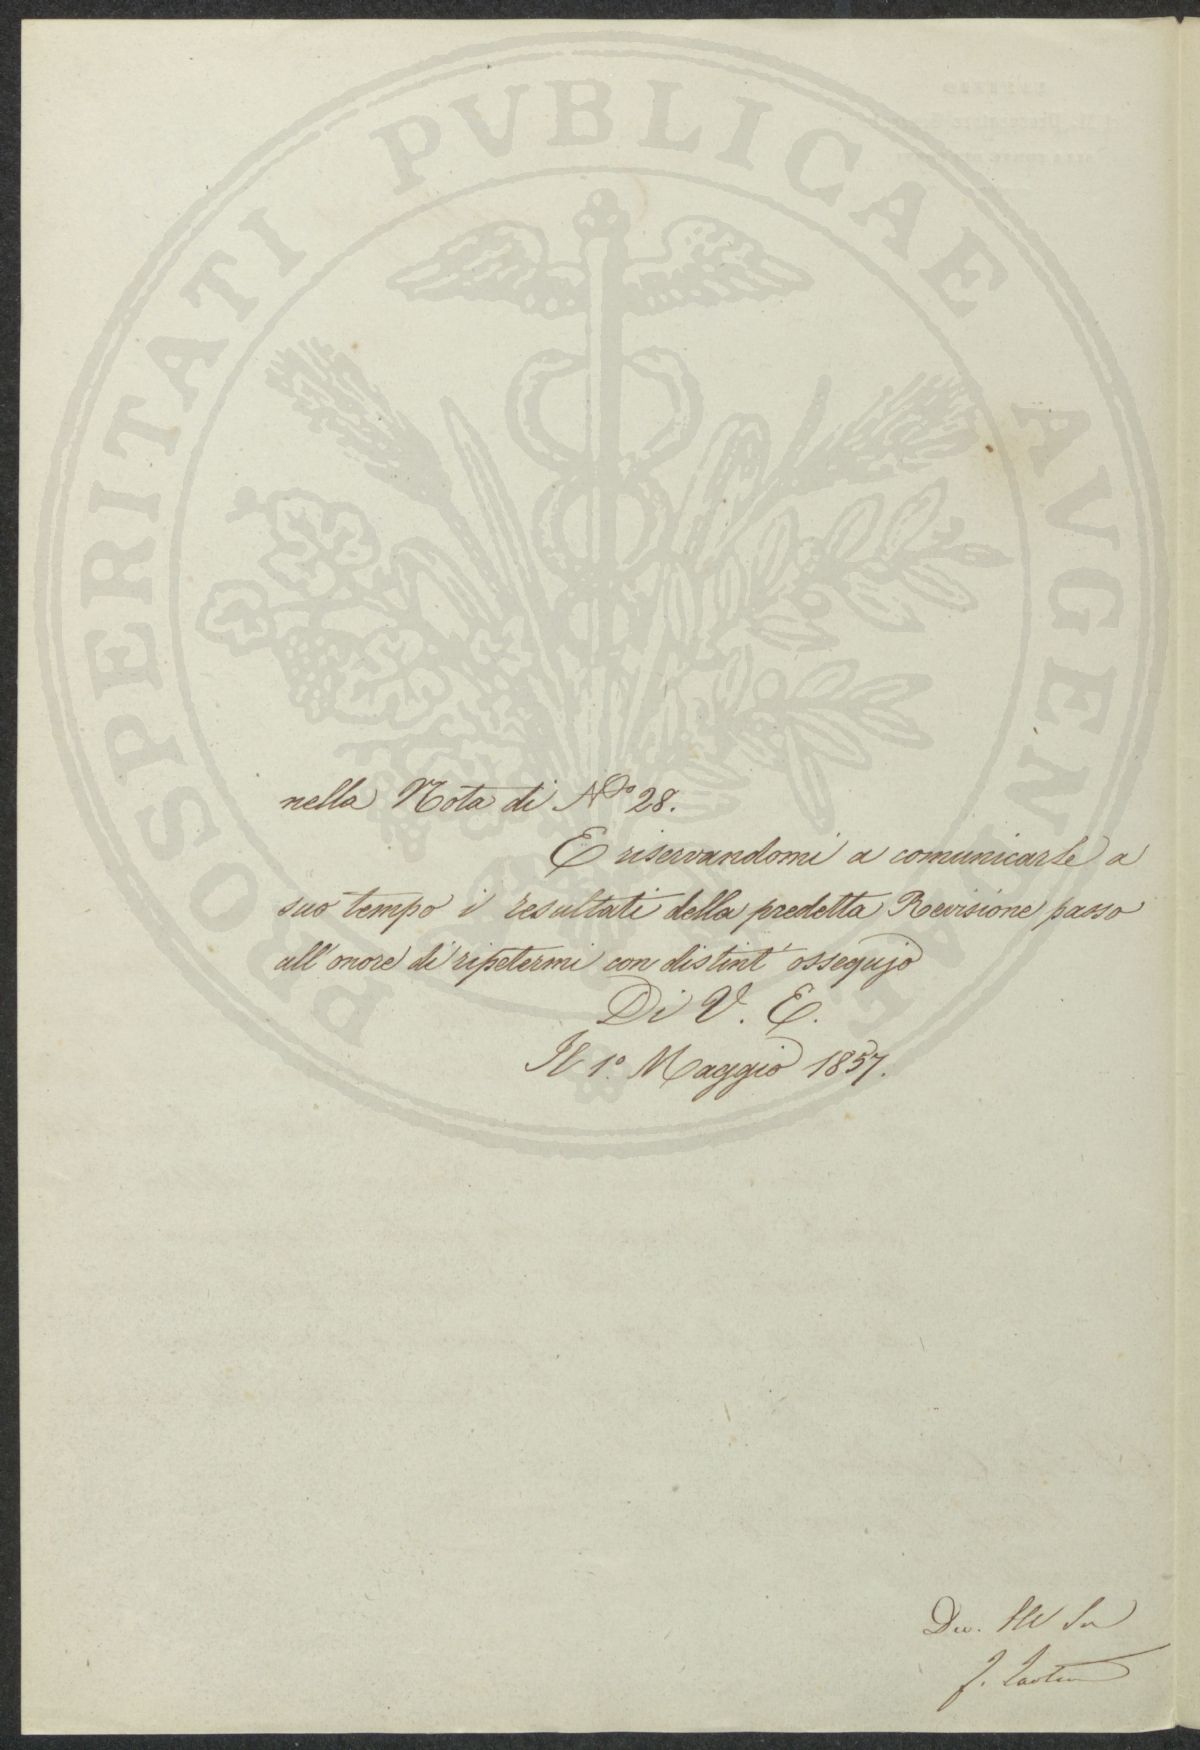 nella Nota di N.° 28.
E riservandomi a comunicarle a
suo tempo i resultati della predetta Revisione passo
all'onore di ripetermi con distint' ossequio
Di V. E.
Il 1.° Maggio 1857.
PROSPERITATI PVBLICAE AVGENDAE